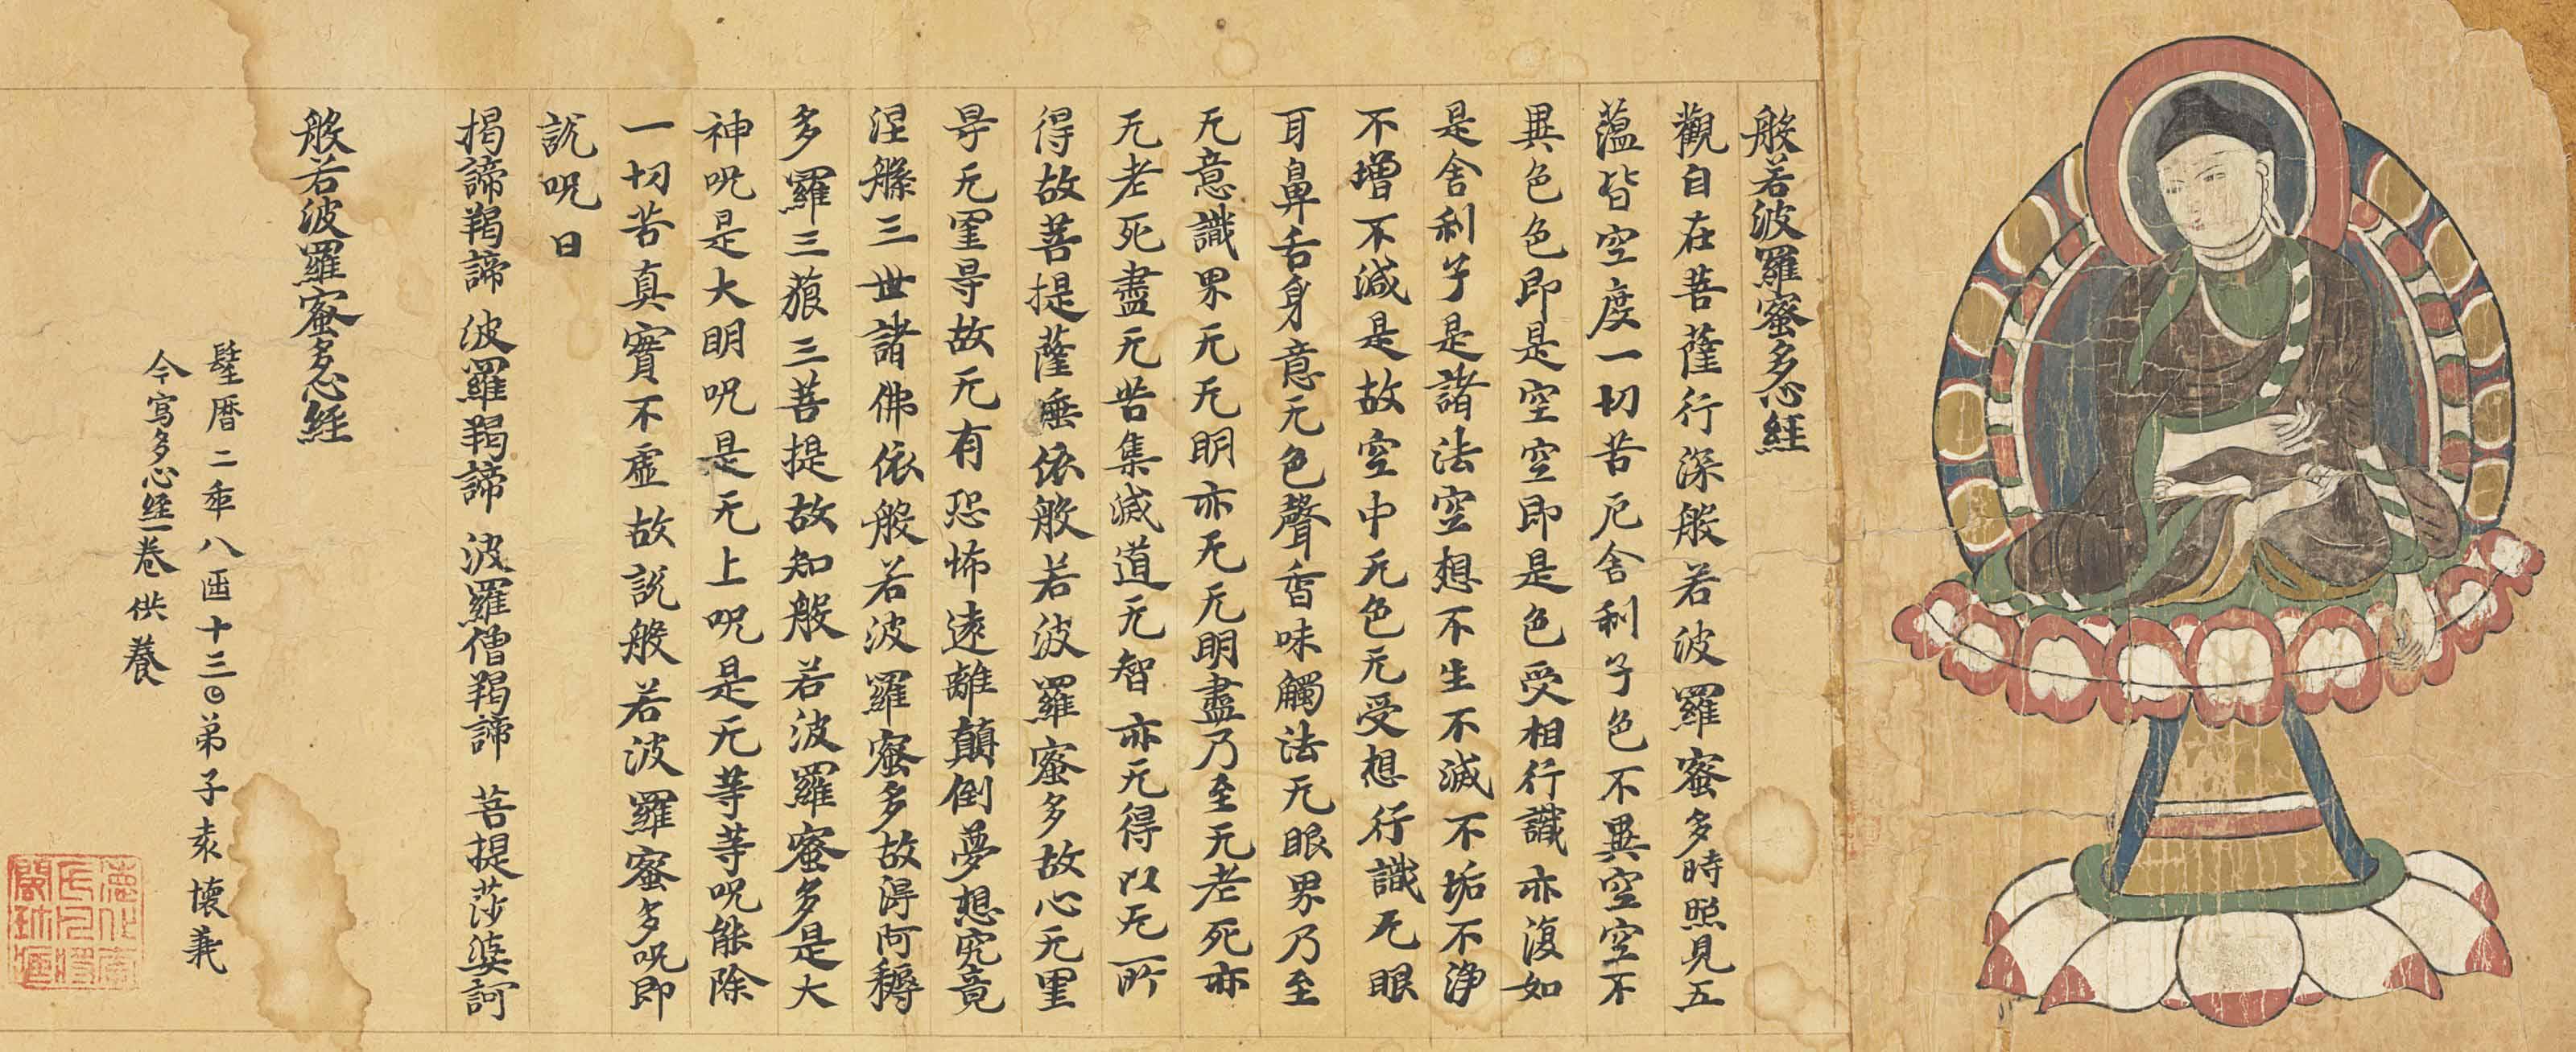 般若波羅蜜多心經
觀自在菩薩行深般若波羅蜜多時照見五
蕰皆空度一切苦厄舍利子色不異空空不
異色色即是空空即是色受相行識亦復如
是舍利子是諸法空想不生不滅不垢不淨
不增不減是故空中无色无受想行識无眼
耳鼻舌身意无色聲香味觸法无眼界乃至
无意識界无无明亦无无明盡乃至无老死亦
无老死盡无苦集滅道无智亦无得以无所
得故菩提薩埵依般若波羅蜜多故心无罣
㝵无罣㝵故无有恐怖遠離顛倒夢想究竟
涅槃三世諸佛依般若波羅蜜多故得阿耨
多羅三藐三菩提故知般若波羅蜜多是大
神呪是大明呪是无上呪是无等等呪能除
一切苦真實不虛故説般若波羅蜜多呪即
説呪曰
揭諦羯諦 波羅羯諦 波羅僧羯諦 菩提莎婆訶
般若波羅蜜多心經
曆二𠡦八𠥱十三〇弟子袁懷義
今寫多心經一卷供養
德化李
氏凡將
閣珍藏